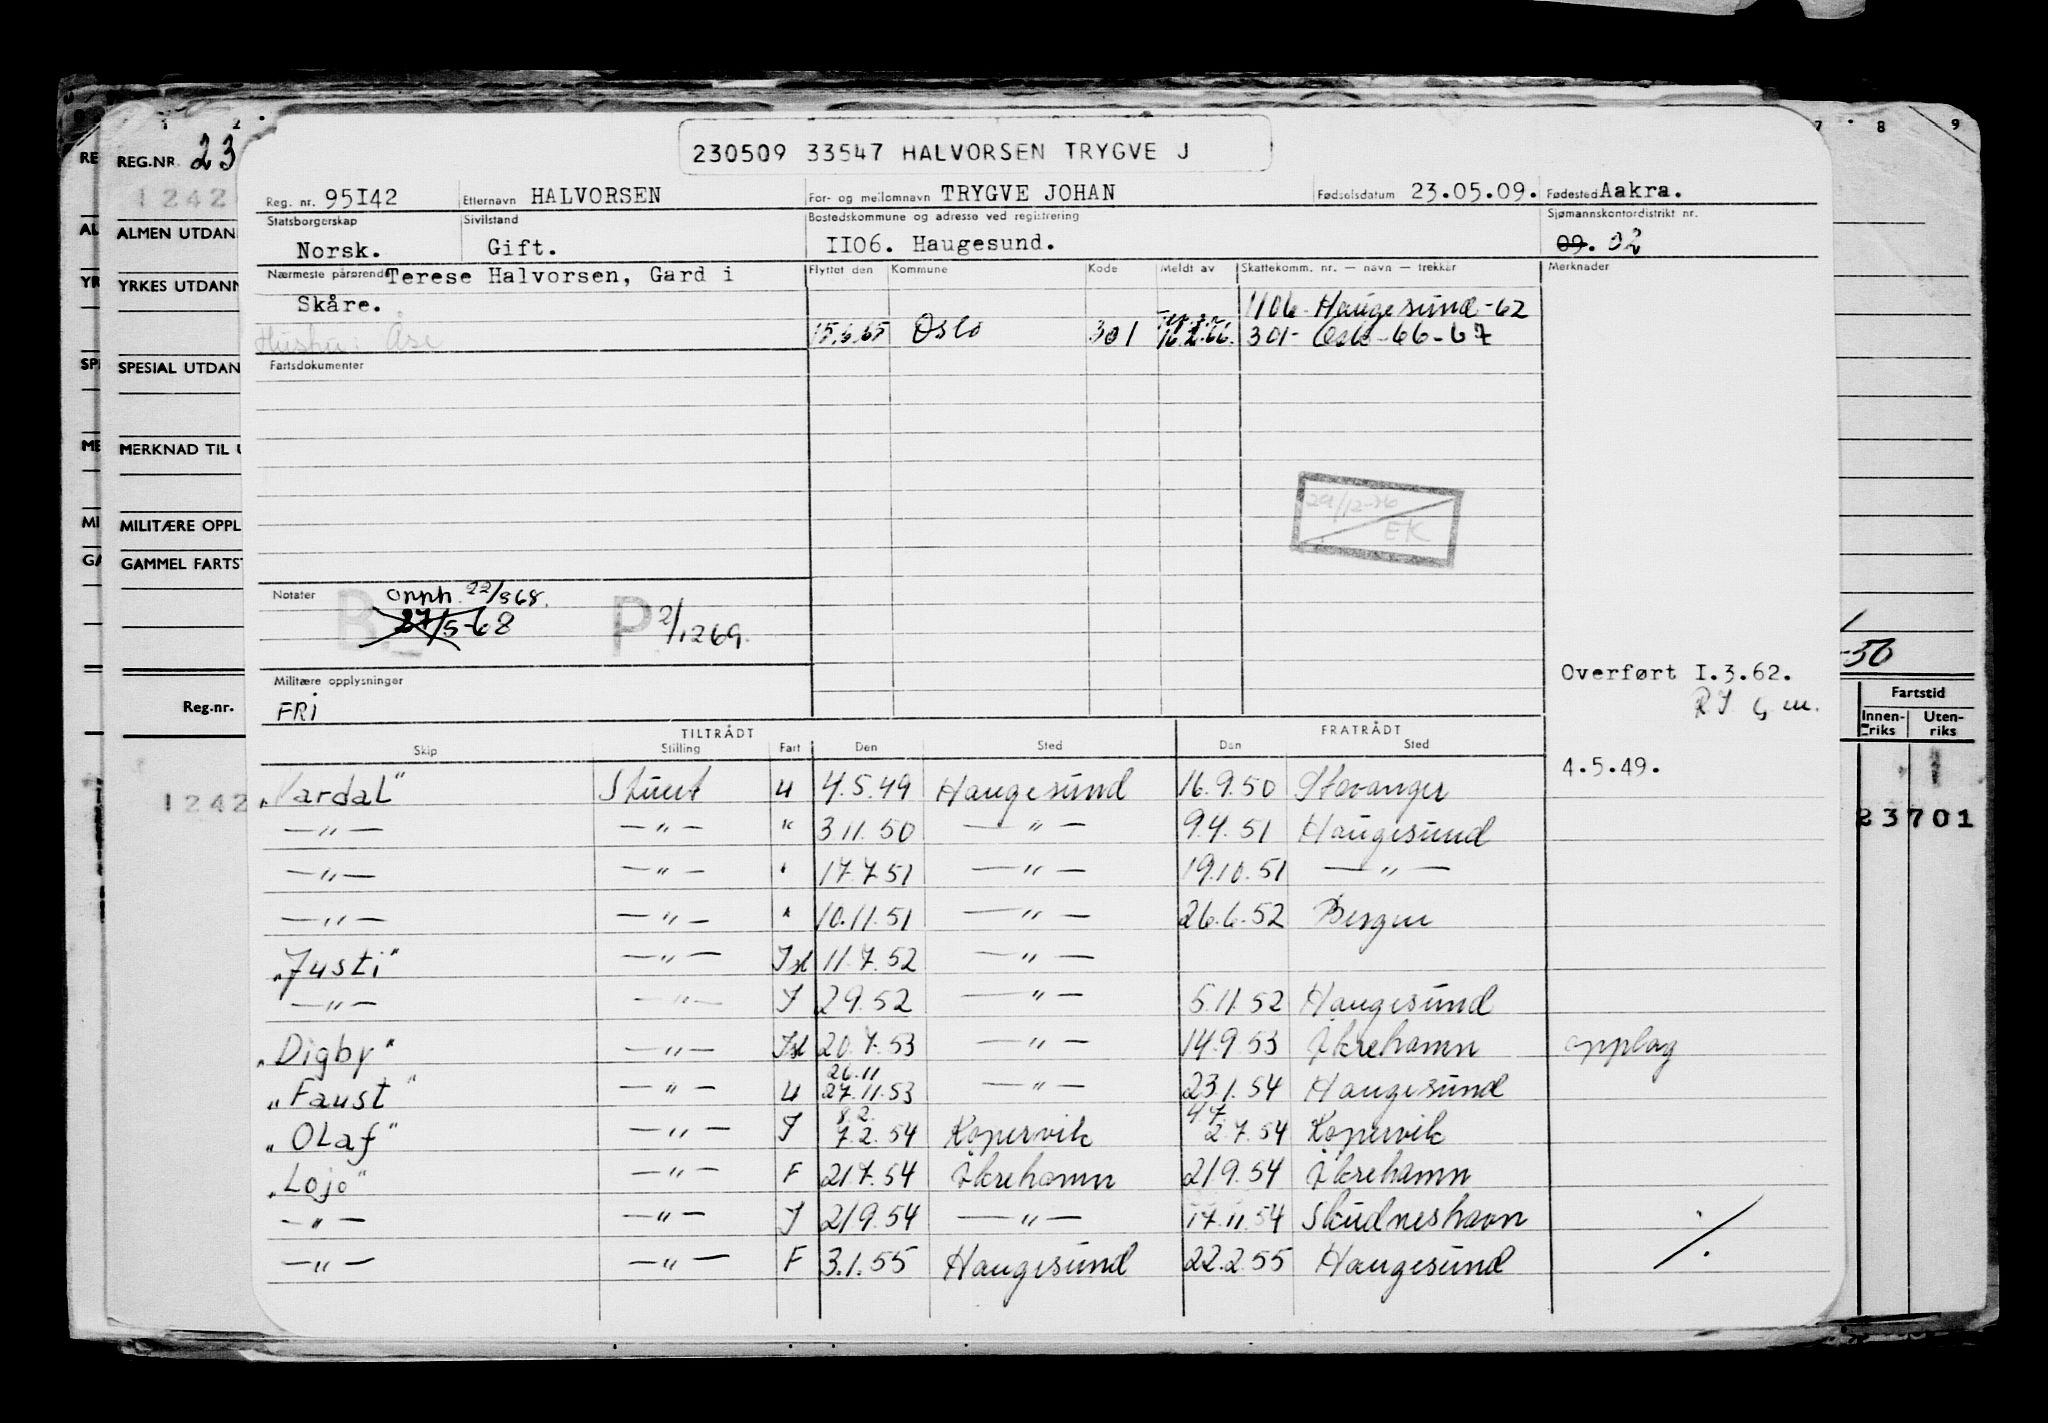 230509 33547 HALVORSEN TRYGVE J
REG.NR. 23
Reg. nr. 95I42 Etternavn HALVORSEN For- og mellomnavn TRYGVE JOHAN Fødselsdatum 23.05.09. Fødested Aakra.
Statsborgerskap Sivilstand Bostedskommune og adresse ved registrering Sjømannskontordistrikt nr.
Norsk. Gift. II06. Haugesund. 09. 02
Nærmeste pårørende Terese Halvorsen, Gard i Flyttet den Kommune Kode Meldt av Skattekomm. nr. — navn — trekkår Merknader
Skåre. 1106 Haugesund-62
Hustru: Åse 15.6.65 Oslo 301 16.2.66. 301- Oslo-66-67
Fartsdokumenter
29/12-76
EK
Notater opph. 22/568.
B 27/5-68 P 2/1269.
Overført I.3.62.
Militære opplysninger
FRi
TILTRÅDT FRATRÅDT
Skip Stilling Fart Den Sted Den Sted
4.5.49.
"Vardal" Stuert U 4.5.49 Haugesund 16.9.50 Stavanger
—"— —"— " 3.11.50 —"— 9.4.51 Haugesund
—"— —"— " 17.7.51 —"— 19.10.51 —"—
—"— —"— " 10.11.51 —"— 26.6.52 Bergen
"Justi" —"— Isl 11.7.52 —"—
—"— —"— I 2.9.52 —"— 5.11.52 Haugesund
"Digby" —"— Isl 20.7.53 —"— 14.9.53 Åkrehamn opplag
26.11
"Faust" —"— U 27.11.53 —"— 23.1.54 Haugesund
8.2. 4.7
"OLaf" —"— I 7.2.54 Kopervik 2.7.54 Kopervik
"Lojo" —"— F 21.7.54 Åkrehamn 21.9.54 Åkrehamn
—"— —"— I 21.9.54 —"— 17.11.54 Skudneshavn
—"— —"— F 3.1.55 Haugesund 22.2.55 Haugesund ./.
1242
ALMEN UTDAN
YRKES UTDANN
SPESIAL UTDAN
MERKNAD TIL U
MILITÆRE OPPL
GAMMEL FARTST
Reg.nr.
1242
RE
AL
YR
SP
ME
MI
GA
7 8 9
-50
Fartstid
Innenriks Uten-riks
23701